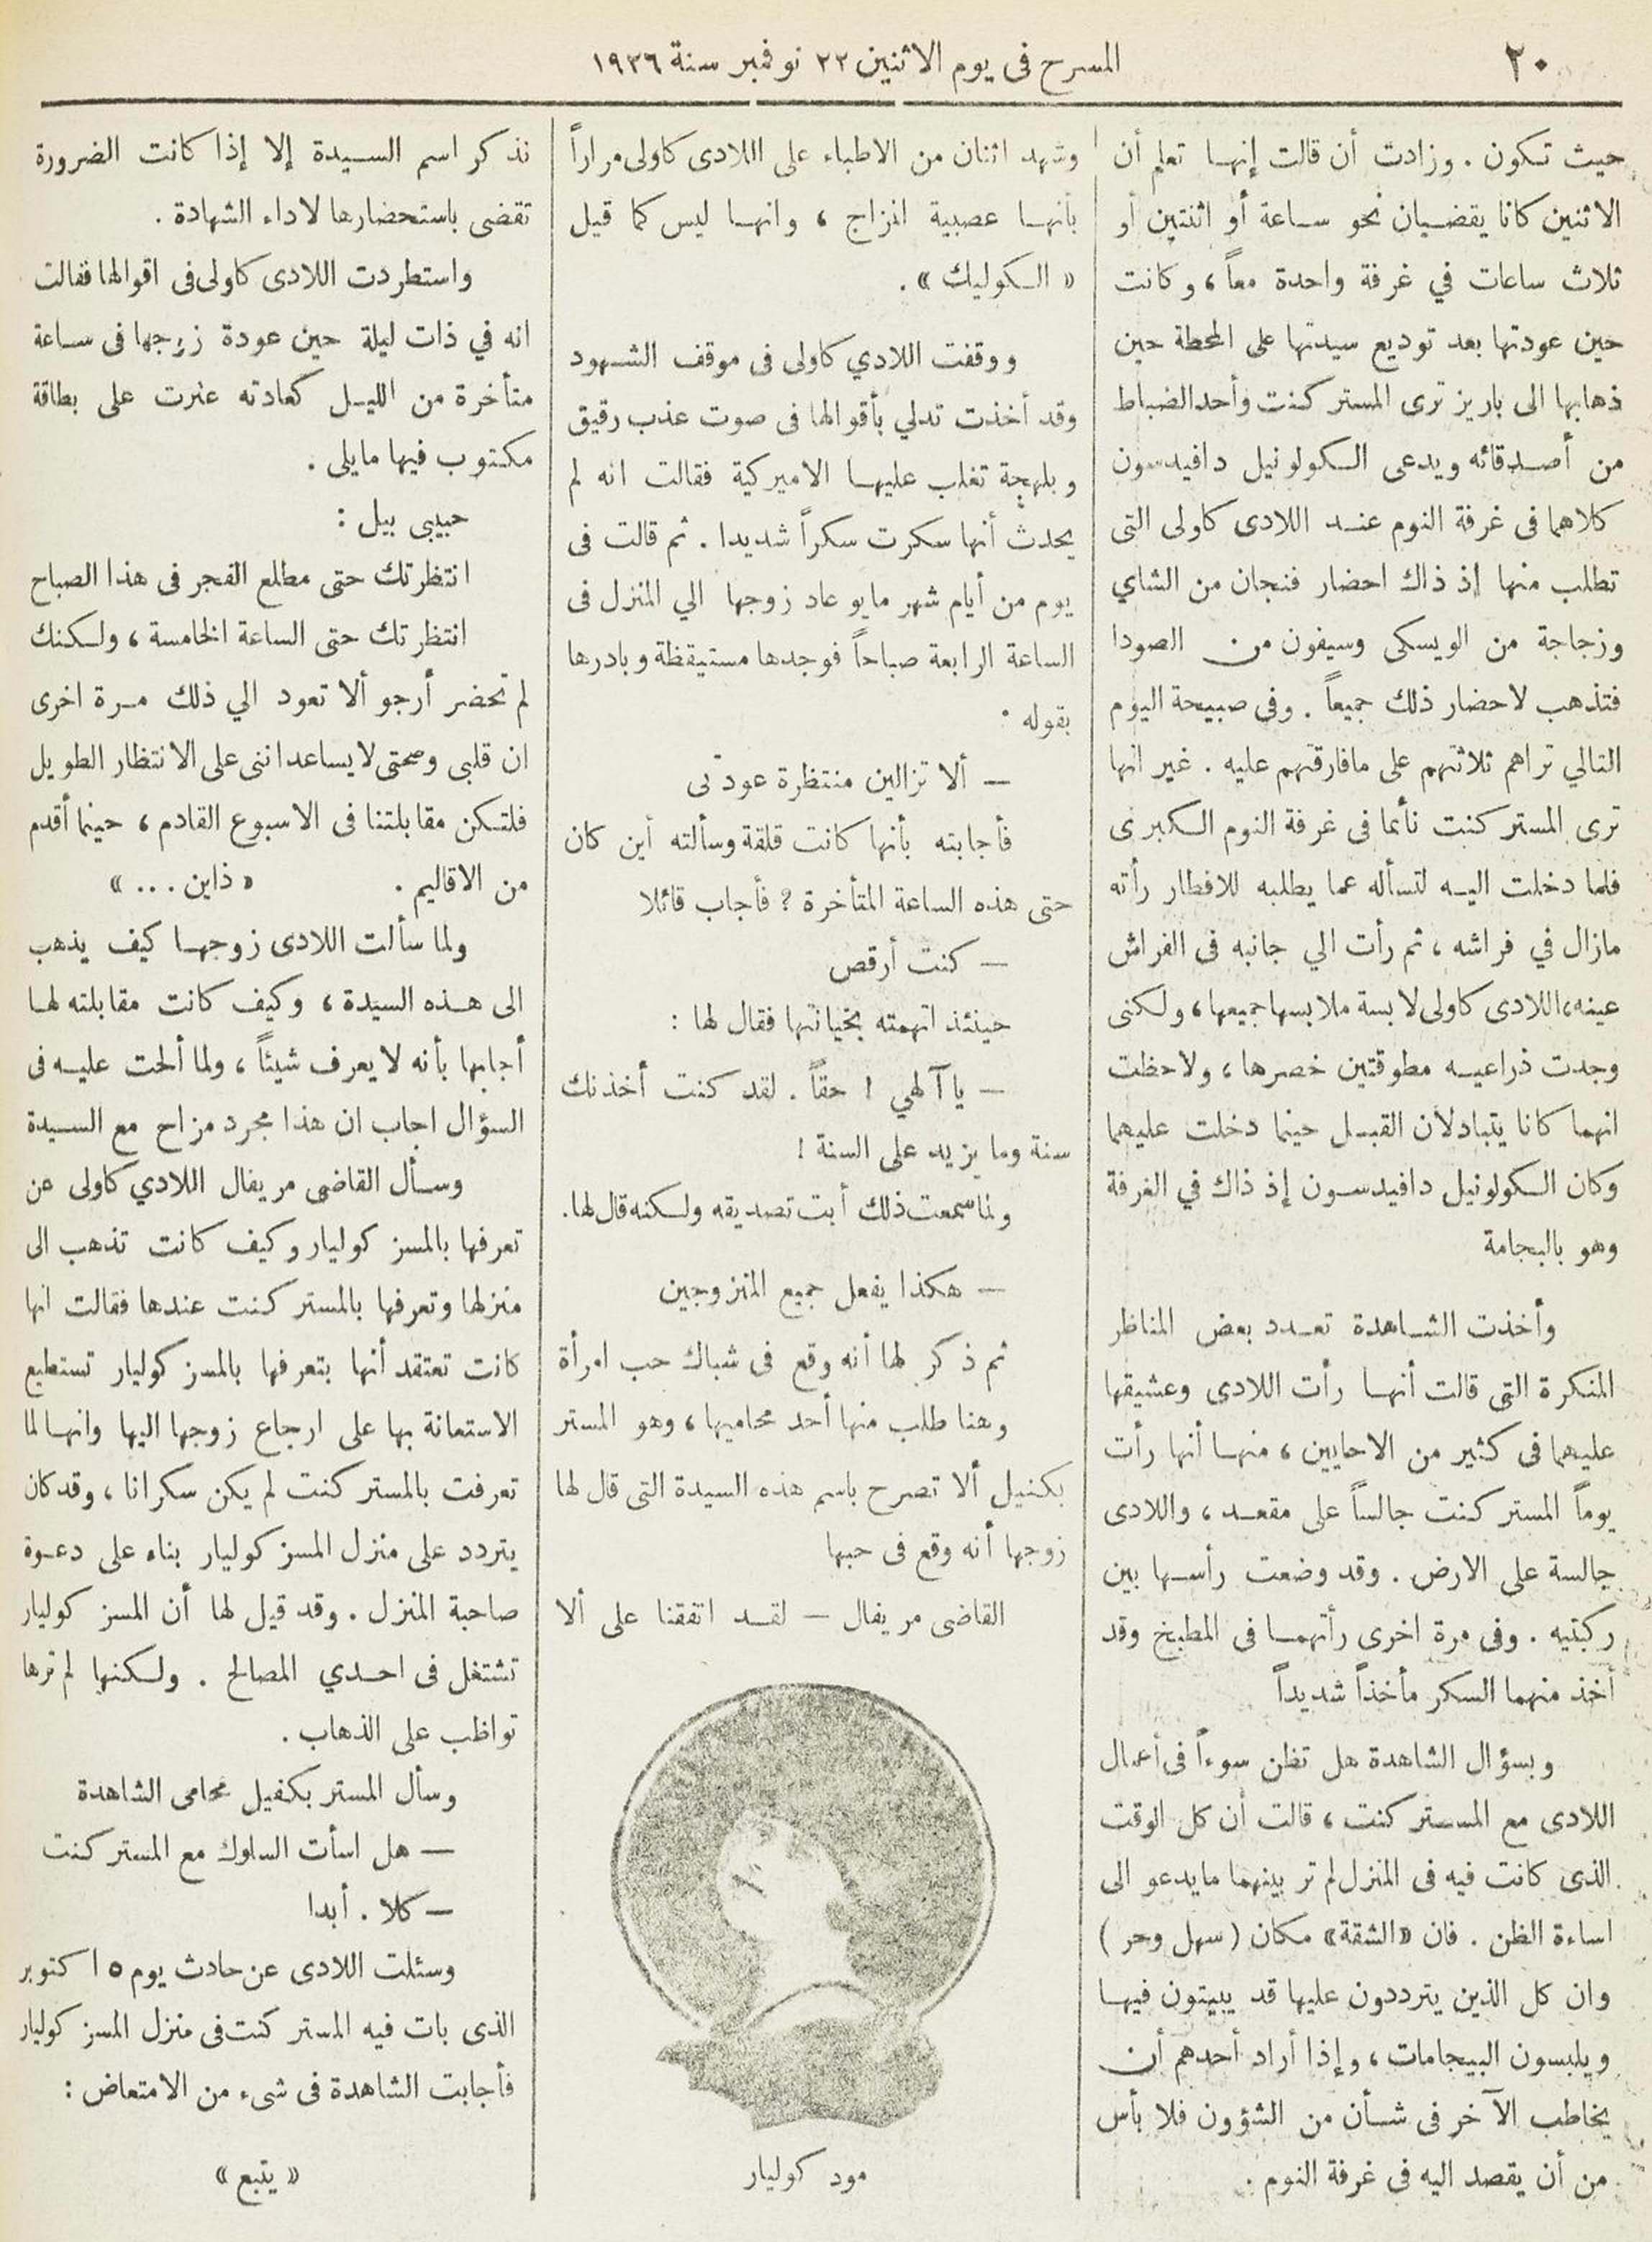 ٢٠
المسرح فى يوم الاثنين ٢٢ نوفمبر سنة ١٩٢٦
حيث تكون . وزادت أن قالت إنها تعلم أن
الاثنين كانا يقضيان نحو ساعة أو اثنتين أو
ثلاث ساعات في غرفة واحدة معاً ، وكانت
حين عودتها بعد توديع سيدتها على المحطة حين
ذهابها الى باريز ترى المستر كنت وأحد الضباط
من أصدقائه ويدعى الكولونيل دافيدسون
كلاهما فى غرفة النوم عند اللادى كاولى التى
تطلب منها إذ ذاك احضار فنجان من الشاي
وزجاجة من الويسكى وسيفون من الصودا
فتذهب لاحضار ذلك جميعاً . وفى صبيحة اليوم
التالي تراهم ثلاثتهم على مافارقتهم عليه . غير انها
ترى المستر كنت نأئما فى غرفة النوم الكبرى
فلما دخلت اليه لتسأله عما يطلبه للافطار رأته
مازال في فراشه ، ثم رأت الي جانبه فى الفراش
عينه، اللادى كاولى لابسة ملابسها جميعها ، ولكنى
وجدت ذراعيه مطوقتين خصرها ، ولاحظت
انهما كانا يتبادلان القبل حينما دخلت عليهما
وكان الكولونيل دافيدسون إذ ذاك في الغرفة
وهو بالبجامة
وأخذت الشاهدة تعدد بعض المناظر
المنكرة التى قالت أنها رأت اللادى وعشيقها
عليهما فى كثير من الاحايين ، منها أنها رأت
يوماً المستر كنت جالساً على مقعد ، واللادى
جالسة على الارض . وقد وضعت رأسها بين
ركبتيه . وفى مرة اخرى رأتهما فى المطبخ وقد
أخذ منهما السكر مأخذاً شديداً
وبسؤال الشاهدة هل تظن سوءاً فى أعمال
اللادى مع المستر كنت ، قالت أن كل الوقت
الذى كانت فيه فى المنزل لم تر بينهما مايدعو الى
اساءة الظن . فان «الشقة» مكان (سهل وحر)
وان كل الذين يترددون عليها قد يبيتون فيها
ويلبسون البيجامات ، وإذا أراد أحدهم أن
يخاطب الآخر فى شأن من الشؤون فلا بأس
من أن يقصد اليه فى غرفة النوم .
وشهد اثنان من الاطباء على اللادى كاولى مراراً
بأنها عصبية المزاج ، وانها ليس كما قيل
« الكوليك » .
ووقفت اللادي كاولى فى موقف الشهود
وقد أخذت تدلي بأقوالها فى صوت عذب رقيق
وبلهجة تغلب عليها الاميركية فقالت انه لم
يحدث أنها سكرت سكراً شديدا . ثم قالت فى
يوم من أيام شهر مايو عاد زوجها الي المنزل فى
الساعة الرابعة صباحاً فوجدها مستيقظة وبادرها
بقوله .
— ألا تزالين منتظرة عودتى
فأجابته بأنها كانت قلقة وسألته أين كان
حتى هذه الساعة المتأخرة ? فأجاب قائلا
— كنت أرقص
حينئذ اتهمته بخيانتها فقال لها :
— يا آلهي ! حقاً . لقد كنت أخذنك
سنة وما يزيد على السنة !
ولما سمعت ذلك أبت تصديقه ولكنه قال لها .
— هكذا يفعل جميع المتزوجين
ثم ذكر لها أنه وقع فى شباك حب امرأة
وهنا طلب منها أحد محاميها ، وهو المستر
بكنيل ألا تصرح باسم هذه السيدة التى قال لها
زوجها أنه وقع فى حبها
القاضى مريفال — لقد اتفقنا على ألا
مود كوليار
نذكر اسم السيدة إلا إذا كانت الضرورة
تقضى باستحضارها لاداء الشهادة .
واستطردت اللادى كاولى فى اقوالها فقالت
انه في ذات ليلة حين عودة زوجها فى ساعة
متأخرة من الليل كعادته عثرت على بطاقة
مكتوب فيها مايلى .
حبيبى بيل :
انتظرتك حتى مطلع الفجر فى هذا الصباح
انتظرتك حتى الساعة الخامسة ، ولكنك
لم تحضر أرجو ألا تعود الي ذلك مرة اخرى
ان قلبى وصحتى لا يساعداننى على الانتظار الطويل
فلتكن مقابلتنا فى الاسبوع القادم ، حينما أقدم
من الاقاليم . « ذاين ... »
ولما سألت اللادى زوجها كيف يذهب
الى هذه السيدة ، وكيف كانت مقابلته لها
أجابها بأنه لا يعرف شيئاً ، ولما ألحت عليه فى
السؤال اجاب ان هذا مجرد مزاح مع السيدة
وسأل القاضى مريفال اللادي كاولى عن
تعرفها بالمسز كوليار وكيف كانت تذهب الى
منزلها وتعرفها بالمستر كنت عندها فقالت انها
كانت تعتقد أنها بتعرفها بالمسز كوليار تستطيع
الاستعانة بها على ارجاع زوجها اليها وانها لما
تعرفت بالمستر كنت لم يكن سكرانا ، وقد كان
يتردد على منزل المسز كوليار بناء على دعوة
صاحبة المنزل . وقد قيل لها أن المسز كوليار
تشتغل فى احدي المصالح . ولكنها لم ترها
تواظب على الذهاب .
وسأل المستر بكفيل محامى الشاهدة
— هل اسأت السلوك مع المستر كنت
— كلا . أبدا
وسئلت اللادى عن حادث يوم ١٥ كتوبر
الذى بات فيه المستر كنت فى منزل المسز كوليار
فأجابت الشاهدة فى شىء من الامتعاض :
« يتبع »